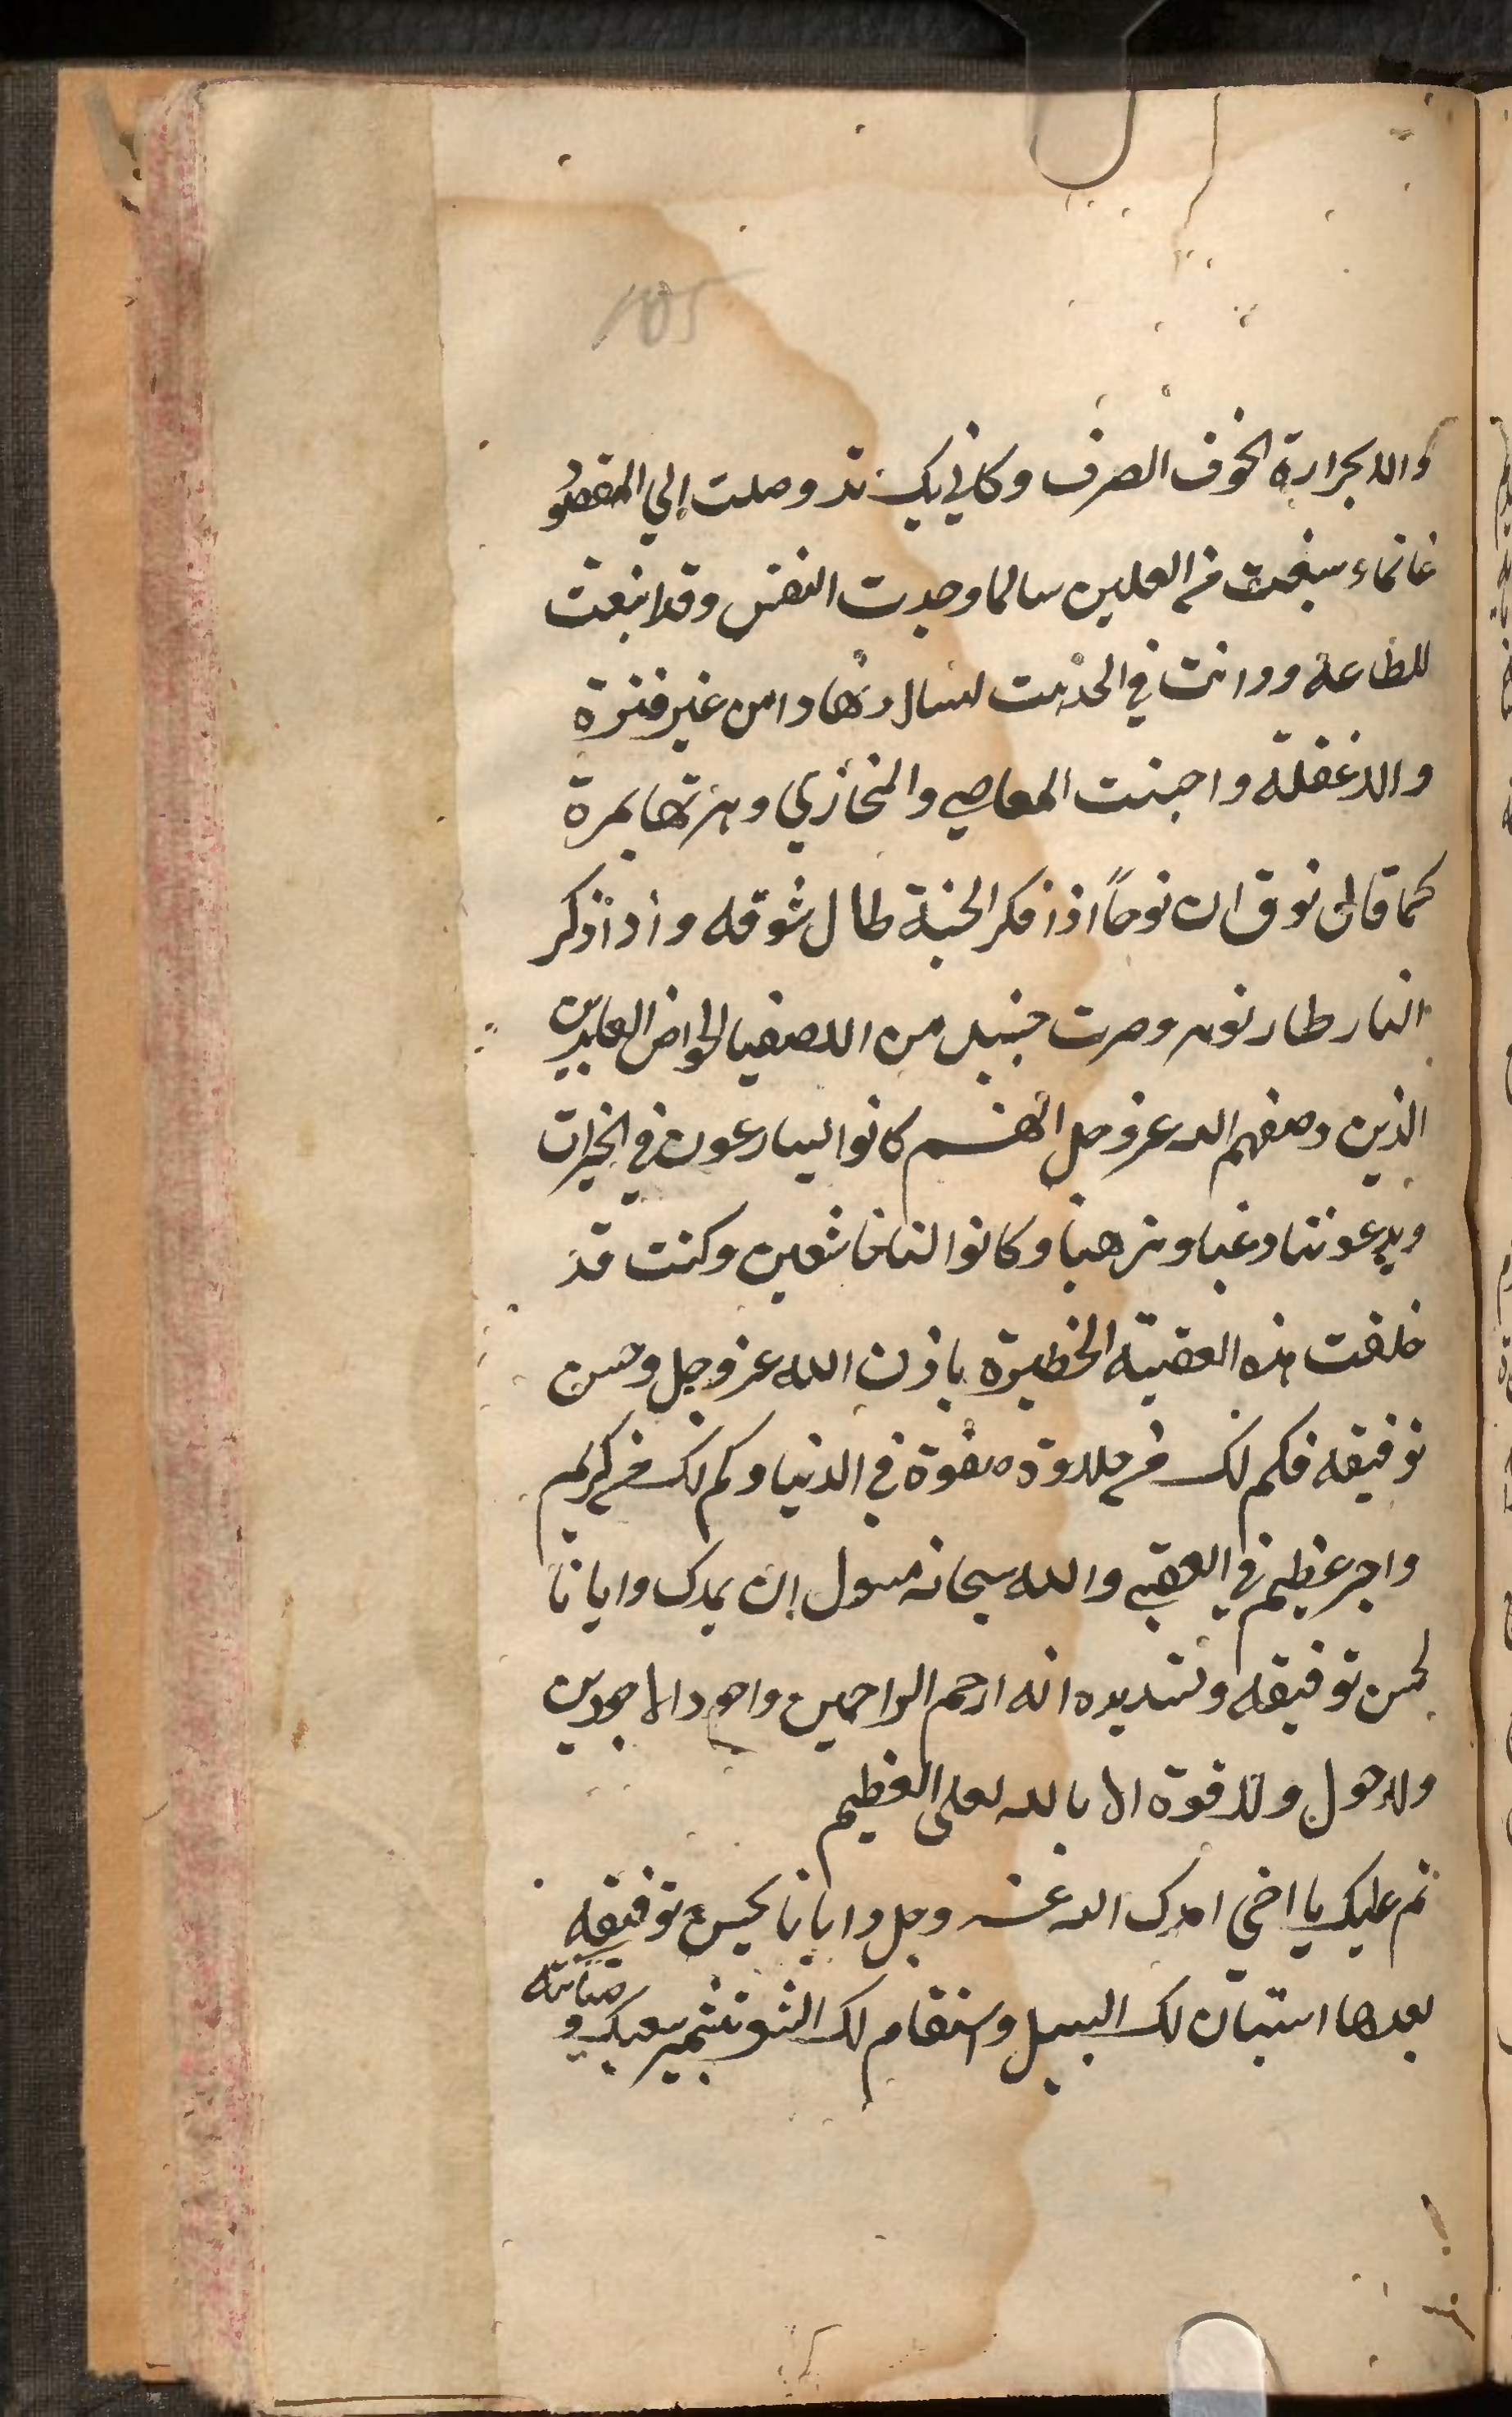 105
والا بحرارة الخوف الصرف وكاني بك قد وصلت إلي المقصود
غانما وسبقت من العلين سالما وجدت النفس وقد انبعثت
للطاعة ودانت في الخدمت ليسال ونهارا من غير فترة
والا غفلة واجبنت المعاصي والمخازي وهزتها بمرة
كما قال نوق ان نوحاً اذا فكر الجنة طال شوقه وأذا أذكر
النار طار نومه وصرت جنبيل من الاصفيا الخواض العابدين
الذين وصفهم الله عز وجل انهم كانوا ليسارعون في الخيرات
ويدعوننا رغبا وترهبا وكانوا لنا خاشعين وكنت قد
خلفت هذه العقبة الخطيرة باذن الله عز وجل وحسن
توفيقه فكم لك من حلاوة وصفوة في الدنيا وكم لك من كريم
واجر عظيم في العقبي والله سبحانه مسول ان يمدك وايانا
لحسن توفيقه وتسديده انه ارحم الراحمين واجود الاجودين
ولا حول ولا قوة الا بالله لعلي العظيم
ثم عليك يا اخي امدك الله عز وجل وايانا بحسن توفيقه
بعدها استبان لك السبيل واستقام لك الشو بتثمير سعيك و
صيانته